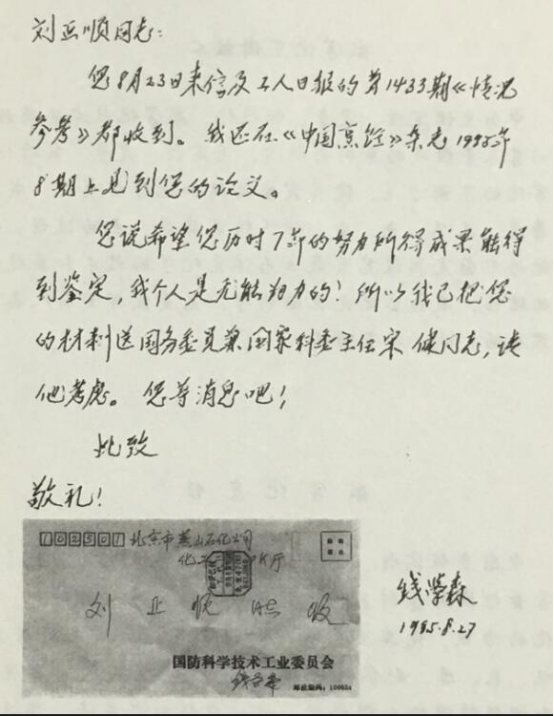 刘正顺同志：
您8月23日来信及工人日报的第1433期《情况
参考》都收到。我还在《中国烹饪》杂志1995年
8期上见到您的论文。
您说希望您历时7年的努力所得成果能得
到鉴定，我个人是无能为力的！所以我已把您
的材料送国务委员兼国家科委主任宋健同志，请
他考虑。您等消息吧！
此致
敬礼！
102501 北京市燕山石化公司
化工
刘 正 顺 收
国防科学技术工业委员会
邮政编码：
钱学森
1995.8.27